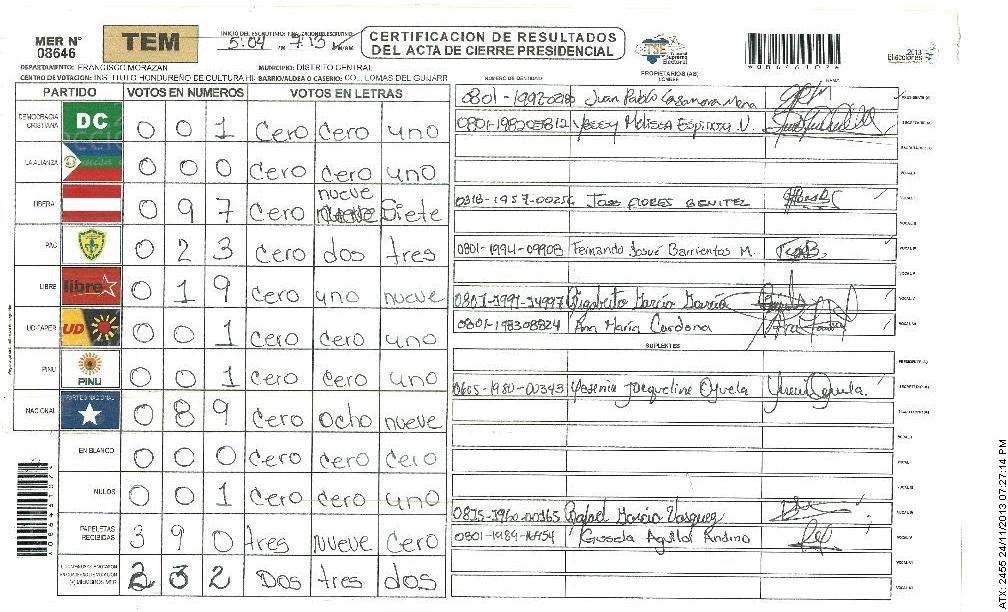 MER N° 08646
TEM
INICIO DEL ESCRUTINIO: FINALIZACION ESCRUTINIO
5:04 PM 7:15 AM/PM
CERTIFICACION DE RESULTADOS
DEL ACTA DE CIERRE PRESIDENCIAL
TSE Tribunal Supremo Electoral
2013 Elecciones
DEPARTAMENTO: FRANCISCO MORAZAN MUNICIPIO: DISTRITO CENTRAL
CENTRO DE VOTACION: INSTITUTO HONDUREÑO DE CULTURA HI- BARRIO/ALDEA O CASERIO: COL. LOMAS DEL GUIJARR
PARTIDO VOTOS EN NUMEROS VOTOS EN LETRAS
NÚMERO DE IDENTIDAD PROPIETARIOS (AS) NOMBRE FIRMA
DEMOCRACIA CRISTIANA DC 0 0 1 Cero Cero uno
LA ALIANZA 0 0 0 Cero Cero uno
LIBERAL 0 9 7 Cero nueve Siete
PAC 0 2 3 Cero dos tres
LIBRE libre 0 1 9 Cero uno nueve
UD-FAPER UD 0 0 1 Cero Cero uno
PINU PINU 0 0 1 Cero Cero uno
NACIONAL PARTIDO NACIONAL 0 8 9 Cero Ocho nueve
EN BLANCO 0 0 0 Cero Cero Cero
NULOS 0 0 1 Cero Cero uno
PAPELETAS RECIBIDAS 3 9 0 tres nueve Cero
2 3 2 Dos tres dos
Juan Pablo Casamora Mena PRESIDENTE (A)
0801-198205812 Yessy Melissa Espinoza V. SECRETARIO (A)
0318-1957-00256 JOSE FLORES BENITEZ
0801-1994-09908 Fernando Josué Barrientos M.
Rigoberto Garcia Garcia
0801-198308824 Ana María Cardona
SUPLENTES
PRESIDENTE (A)
0605-1980-00343 Yesenia Jacqueline Oyuela SECRETARIO (A)
Rafael Garcia Vasquez
Gissela Aguilar Andino
ATX: 2455 24/11/2013 07:27:14 PM